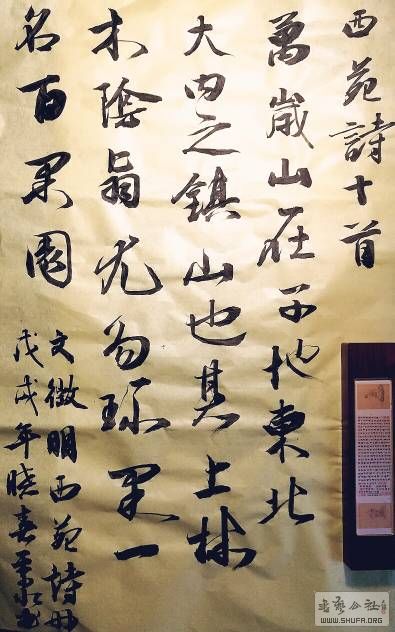 西苑詩十首
萬歲山在子地東北
大内之鎮山也其上林
木陰翳尤多珎果一
名百果園
文徵明西苑詩冊
戊戌年曉春
书艺公社
WWW.SHUFA.ORG